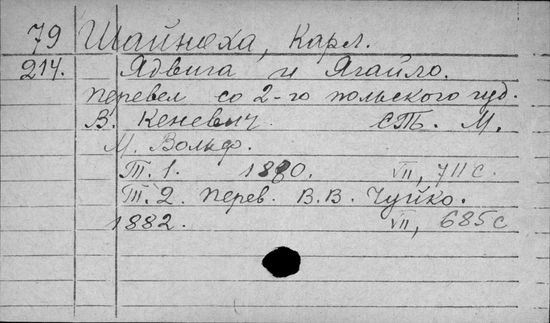 79 Шайноха, Карл.
214. Ядвига и Ягайло.
перевел со 2-го польского изд.
В. Кеневич. СПБ. М.
М. Вольф.
Т. 1. 1880. VII, 711 с.
Т. 2. перев. В. В. Чуйко.
1882. VII, 685 с